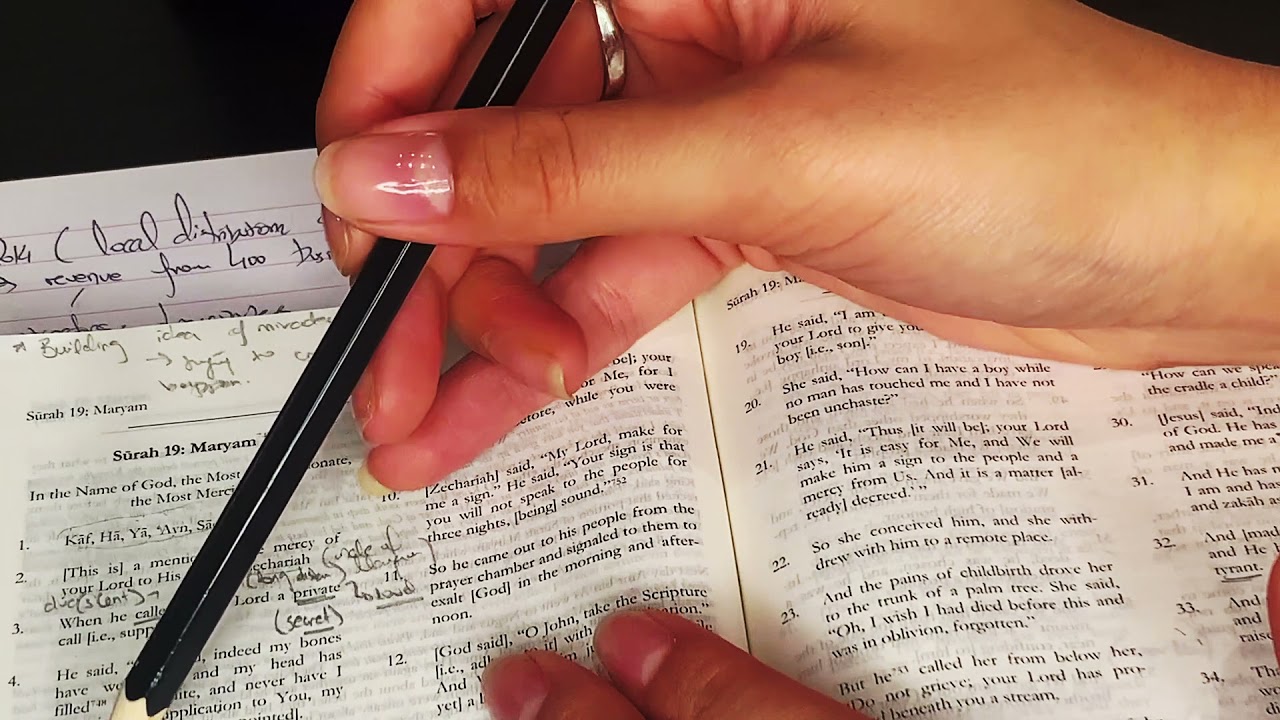 2014 ( local distribution
revenue from 400
* Building idea of
Sūrah 19: Maryam
Sūrah 19: Maryam
In the Name of God, the Most
the Most Merci
1. Kāf, Hā, Yā, ‘Ayn, Sā
2. [This is] a menti mercy of
your Lord to His echariah
3. When he called Lord a private
call [i.e., supp
(secret)
4. He said, indeed my bones
have we and my head has
filled⁷⁴⁸ ite, and never have I
application to You, my
ointed].
be]; your
or Me, for I
efore, while you were
10. [Zechariah] said, “My Lord, make for
me a sign.” He said, “Your sign is that
you will not speak to the people for
three nights, [being] sound.”⁷⁵²
11. So he came out to his people from the
prayer chamber and signaled to them to
exalt [God] in the morning and after-
noon.
12. [God said], “O John, take the Scripture
[i.e., ad it] with
And
yet] a
Sūrah 19: Ma
19. He said, “I am
your Lord to give you
boy [i.e., son].”
20. She said, “How can I have a boy while
no man has touched me and I have not
been unchaste?”
21. He said, “Thus [it will be]; your Lord
says, ‘It is easy for Me, and We will
make him a sign to the people and a
mercy from Us. And it is a matter [al-
ready] decreed.’”
22. So she conceived him, and she with-
drew with him to a remote place.
23. And the pains of childbirth drove her
to the trunk of a palm tree. She said,
“Oh, I wish I had died before this and
was in oblivion, forgotten.”
But he called her from below her,
“Do not grieve; your Lord has pro-
d beneath you a stream.
“How can we spe
the cradle a child?”
30. [Jesus] said, “Ind
of God. He has
and made me a
31. And He has m
I am and has
and zakāh as
32. And [mad
and He
tyrant.
33. And
and
raise
34. Tha
we
di